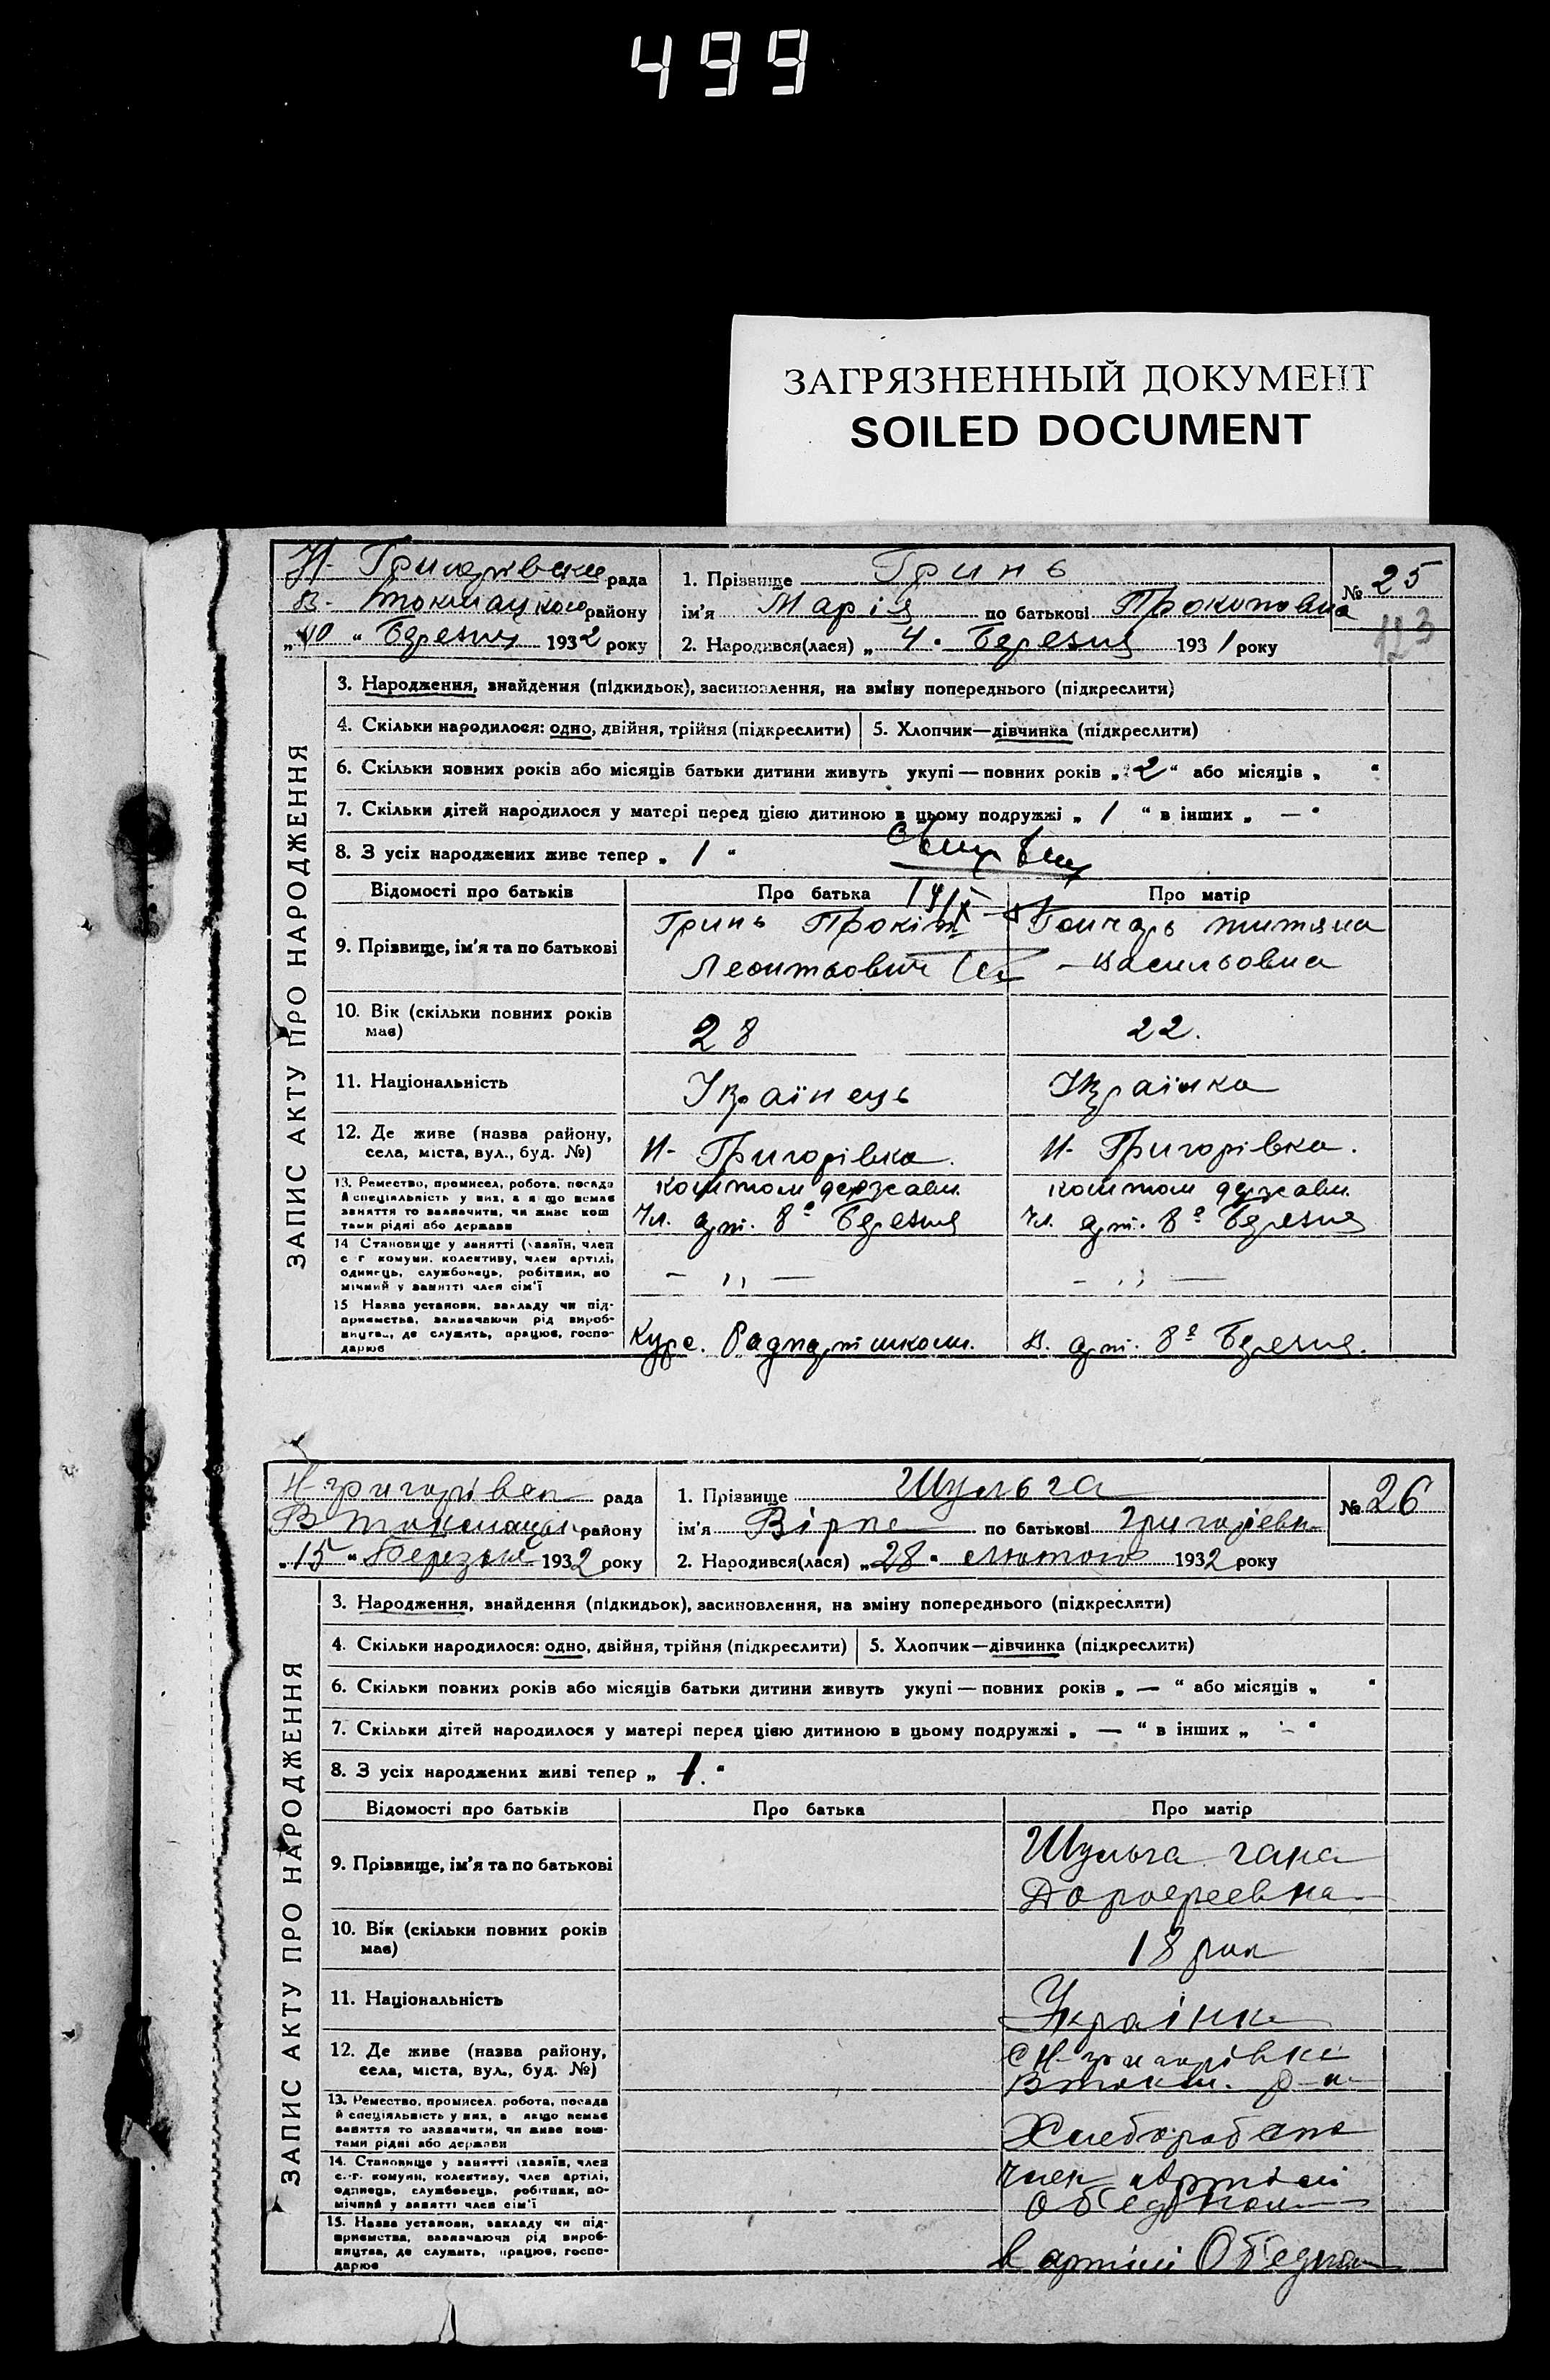 499
ЗАГРЯЗНЕННЫЙ ДОКУМЕНТ
SOILED DOCUMENT
ЗАПИС АКТУ ПРО НАРОДЖЕННЯ
Н- Григорівська рада
В- Токмацкого району
„10 “ Березня 1932 року
1. Прізвище Гринь
ім'я Марія по батькові Прокоповна
2. Народився(лася) „ 4 “ Березня 1931 року
№ 25
123
3. Народження, знайдення (підкидьок), засиновлення, на зміну попереднього (підкреслити)
4. Скільки народилося: одно, двійня, трійня (підкреслити)
5. Хлопчик—дівчинка (підкреслити)
6. Скільки повних років або місяців батьки дитини живуть укупі — повних років „ 2 “ або місяців „ “
7. Скільки дітей народилося у матері перед цією дитиною в цьому подружжі „ 1 “ в інших „ — “
8. З усіх народжених живе тепер „ 1 “
Відомості про батьків Про батька Про матір
9. Прізвище, ім'я та по батькові
Гринь Прокіп
Леонтьович
Гончарь Титяна
Васильовна
10. Вік (скільки повних років має)
28
22.
11. Національність
Українець
Українка
12. Де живе (назва району,
села, міста, вул., буд. №)
Н- Григорівка.
Н- Григорівка.
13. Ремество, промисел, робота, посада
й спеціяльність у них, а якщо немає
заняття то зазначити, чи живе кош
тами рідні або держави
коштом державн.
Чл. арт. 8е Березня
коштом державн.
Чл. арт. 8е Березня
14 Становище у занятті (хазяїн, член
с г комуни, колективу, член артілі,
одинець, службовець, робітник, по
мічний у занятті член сім'ї
— ,, —
— ,, —
15 Назва установи, закладу чи під-
приємства, зазначаючи рід вироб-
ництва, де служить, працює, госпо-
дарює
Курс. Радпартшколи.
В. арт. 8е Березня.
ЗАПИС АКТУ ПРО НАРОДЖЕННЯ
Н-григорівск рада
В Токмацьк району
„15 “ Березня 1932 року
1. Прізвище Шульга
ім'я Вірне по батькові Григорієвн
2. Народився(лася) „28 “ лютого 1932 року
№ 26
3. Народження, знайдення (підкидьок), засиновлення, на зміну попереднього (підкреслити)
4. Скільки народилося: одно, двійня, трійня (підкреслити)
5. Хлопчик—дівчинка (підкреслити)
6. Скільки повних років або місяців батьки дитини живуть укупі — повних років „ — “ або місяців „ “
7. Скільки дітей народилося у матері перед цією дитиною в цьому подружжі „ — “ в інших „ — “
8. З усіх народжених живі тепер „ 1. “
Відомості про батьків Про батька Про матір
9. Прізвище, ім'я та по батькові
Шульга гана
Дорофеевна
10. Вік (скільки повних років
має)
18 рок
11. Національність
Українка
12. Де живе (назва району,
села, міста, вул., буд. №)
С Н-григорівка
В токм. р-н
13. Ремество, промисел. робота, посада
й спеціяльність у них, а якщо немає
заняття то зазначити, чи живе кош-
тами рідні або держави
Хлеборобство
14. Становище у занятті (хазяїн, член
с.-г. комуни, колективу, член артілі,
одинець, службовець, робітник, по-
мічний у занятті член сім'ї
член Артілі
15. Назва установи, закладу чи під-
приємства, зазначаючи рід вироб-
ництва, де служить, працює, госпо-
дарює
в артілі